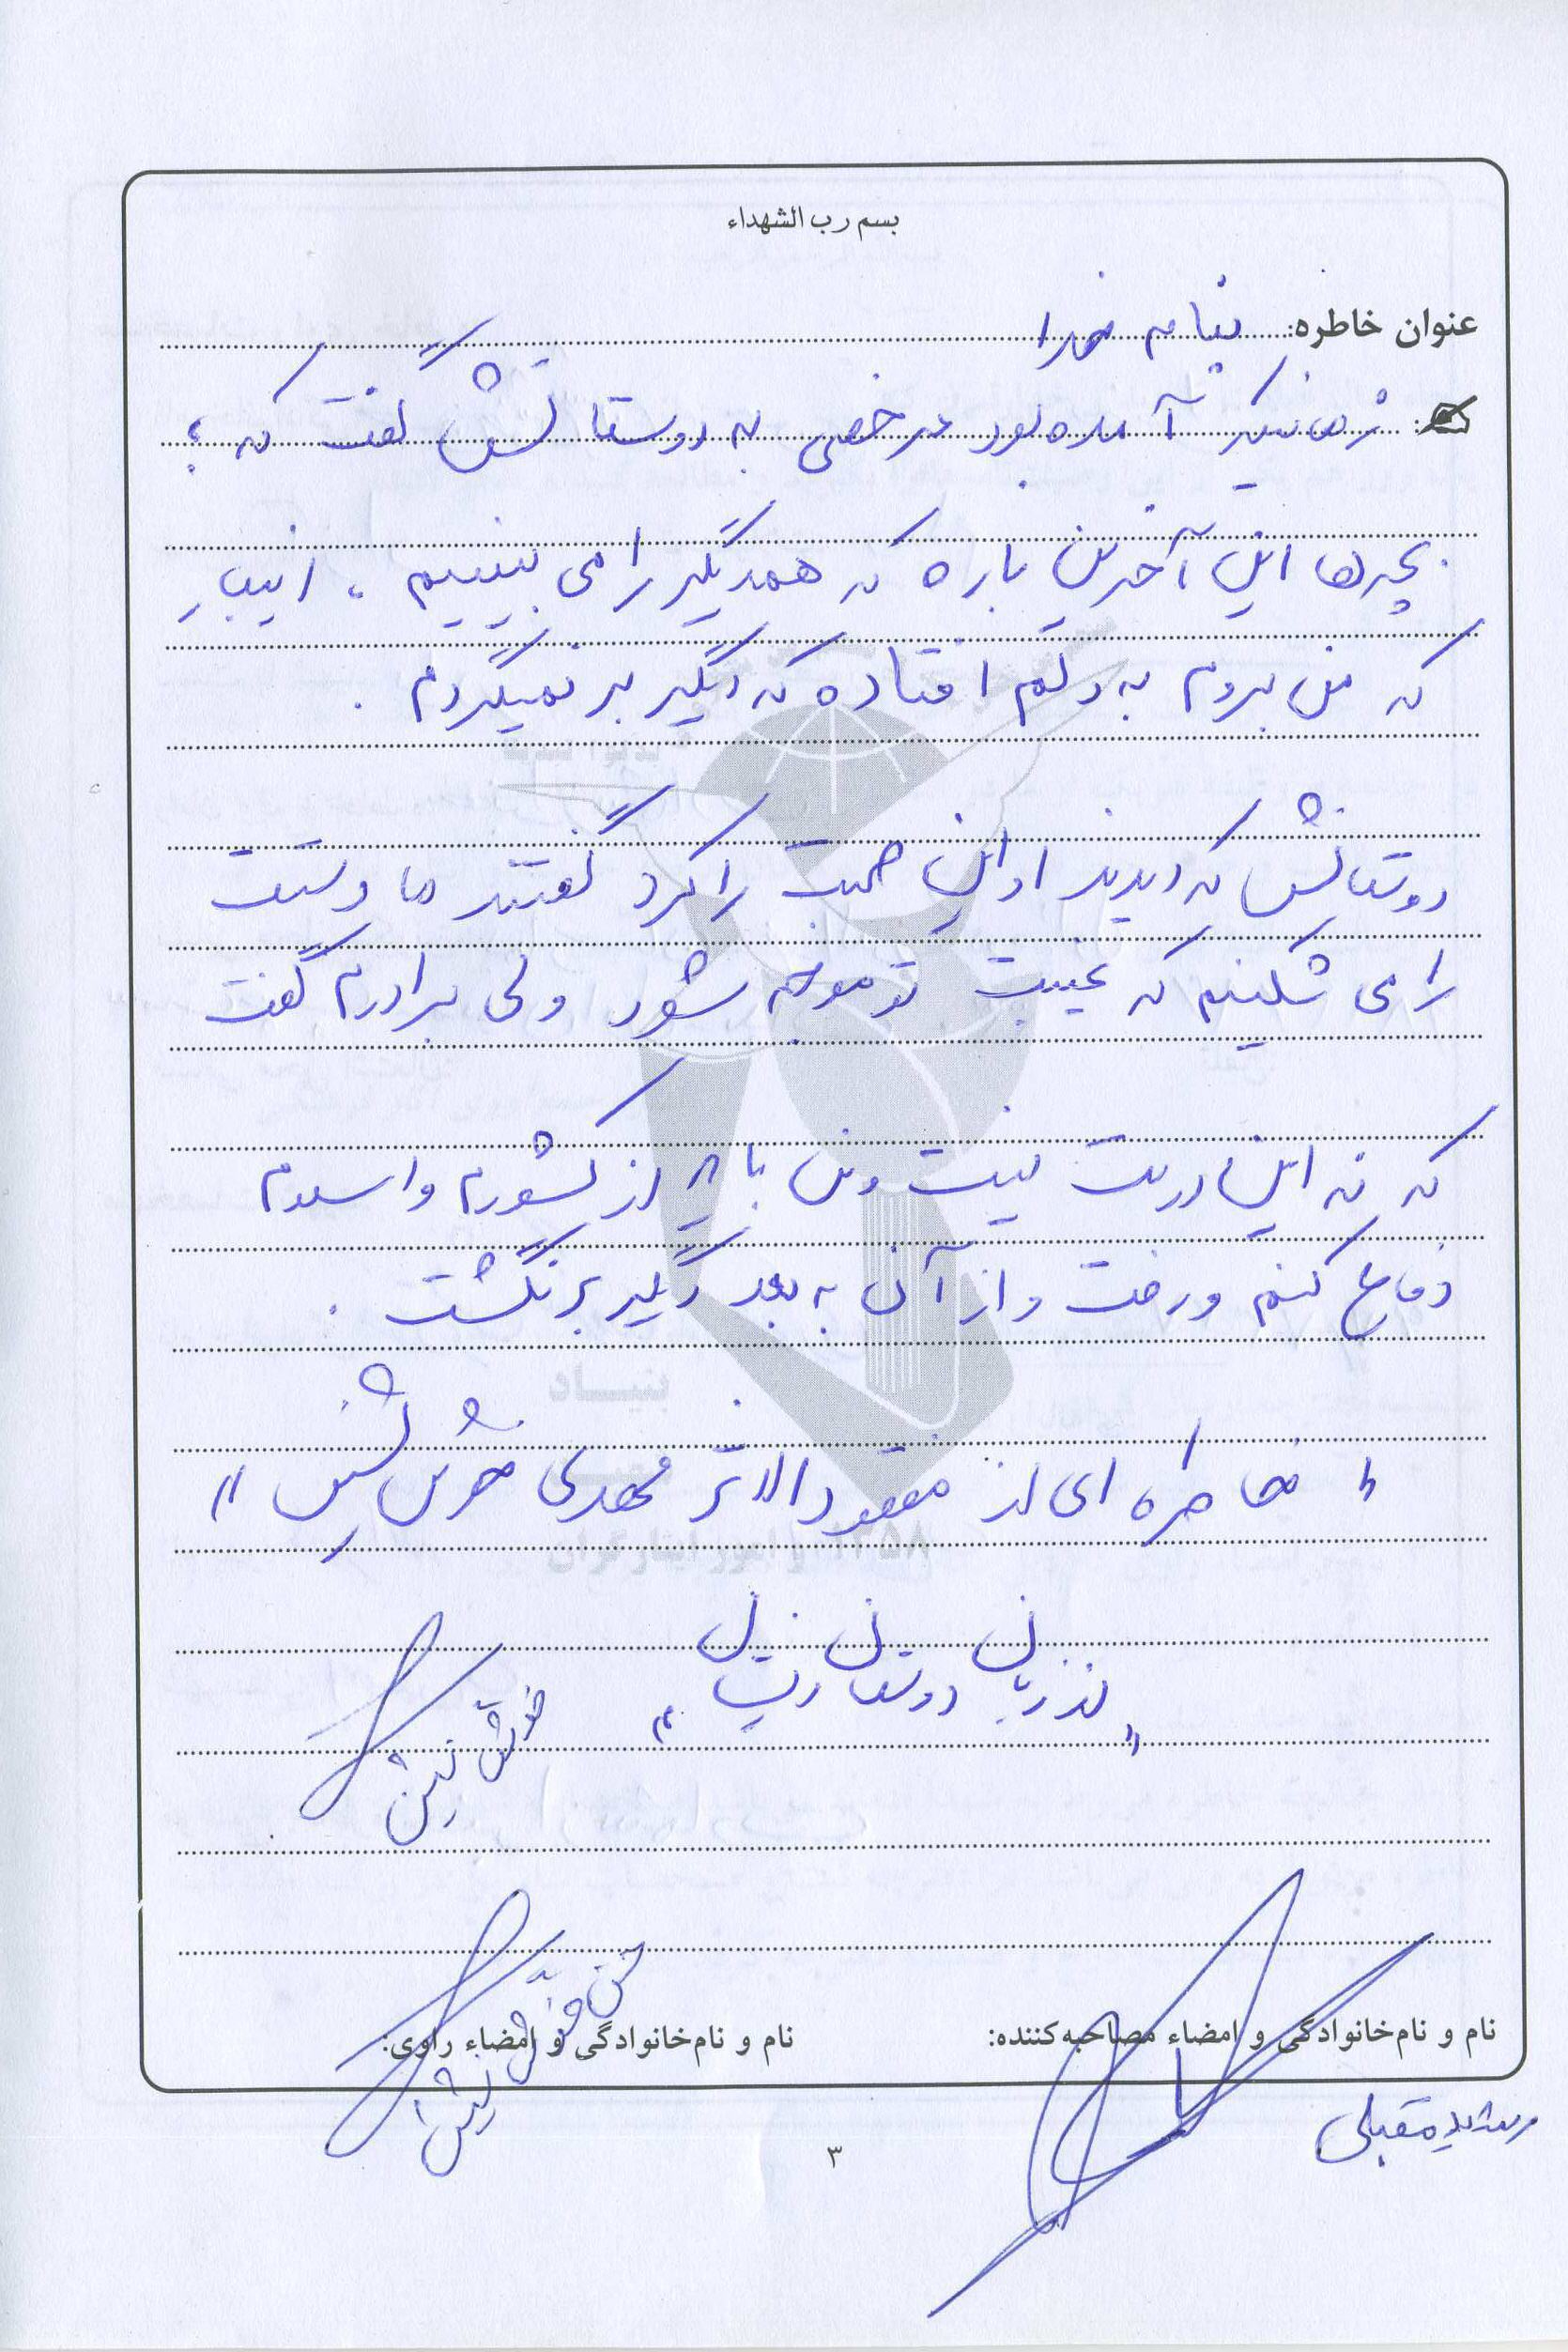 بسم رب الشهداء
عنوان خاطره: بنام خدا
زمانیکه آمده بود مرخصی به دوستانش گفت که :
بچه ها این آخرین باره که همدیگر را می بینیم ، اینبار
که من بروم به دلم افتاده که دیگر بر نمیگردم .
دوستانش که دیدند او این صحبت را کرد گفتند ما دستت
را می شکنیم که غیبت تو موجه شود ولی برادرم گفت
که نه این درست نیست و من باید از کشورم و اسلام
دفاع کنم و رفت و از آن به بعد دیگر برنگشت .
" خاطره ای از مفقودالاثر مهدی خوش نشین "
" از زبان دوستان ایشان "
خوش نشین
نام و نام‌خانوادگی و امضاء مصاحبه‌کننده:
نام و نام‌خانوادگی و امضاء راوی:
خوش نشین
مقبلی
۳
بنیاد
و امور ایثارگران
۱۳۵۸